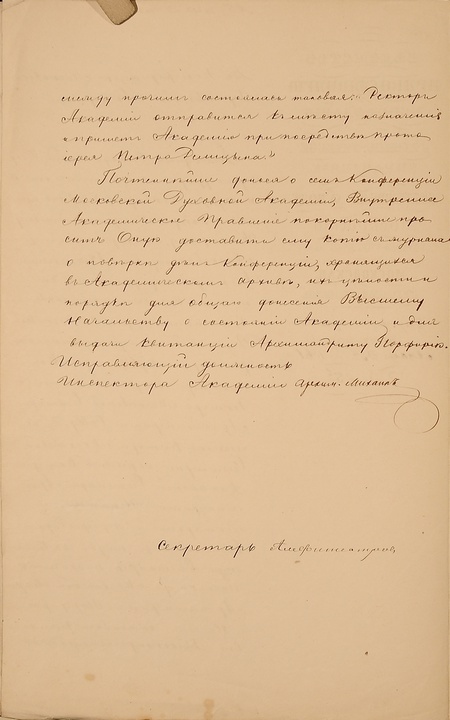 между прочимъ состоялась таковая: „Ректоръ
Академіи отправится къ мѣсту назначенія
и приметъ Академію при посредствѣ Прото
іерея Петра Делицына."
Почтеннѣйше донося о семъ Конференціи
Московской Духовной Академіи, Внутреннее
Академическое Правленіе покорнѣйше про
ситъ Оную доставить ему копію съ журнала
о повѣркѣ дѣлъ Конференціи, хранящихся
въ Академическомъ архивѣ, ихъ цѣлости и
порядка для общаго донесенія Высшему
Начальству о состояніи Академіи, и для
выдачи квитанціи Архимандриту Порфирію.
Исправляющій должность
Инспектора Академіи Архим. Михаилъ
Секретарь Амфитеатровъ